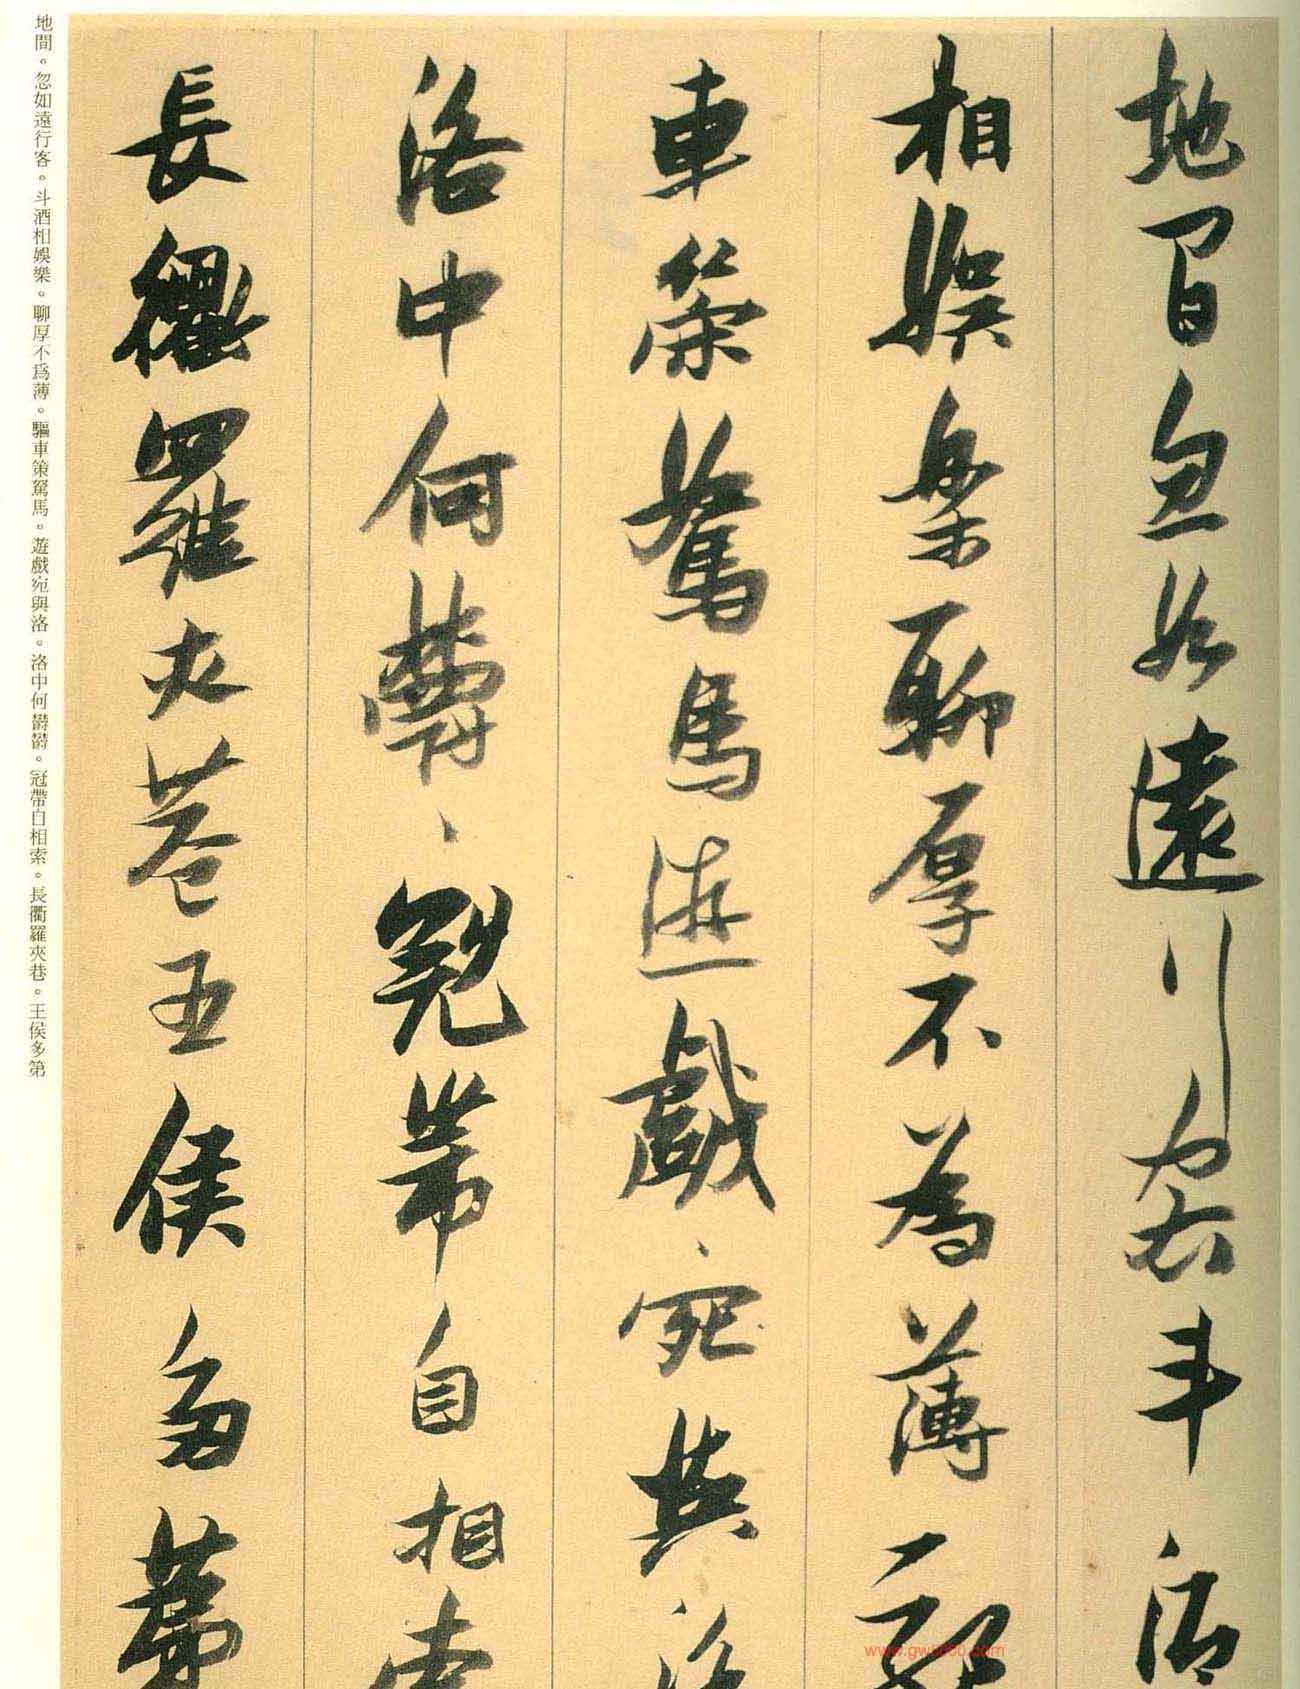 地間忽如遠行客斗酒
相娛樂聊厚不為薄驅
車策駑馬遊戲宛與洛
洛中何欝〻冠帶自相索
長衢羅夾巷王侯多第
地間。忽如遠行客。斗酒相娛樂。聊厚不爲薄。驅車策駑馬。遊戲宛與洛。洛中何欝欝。冠帶自相索。長衢羅夾巷。王侯多第